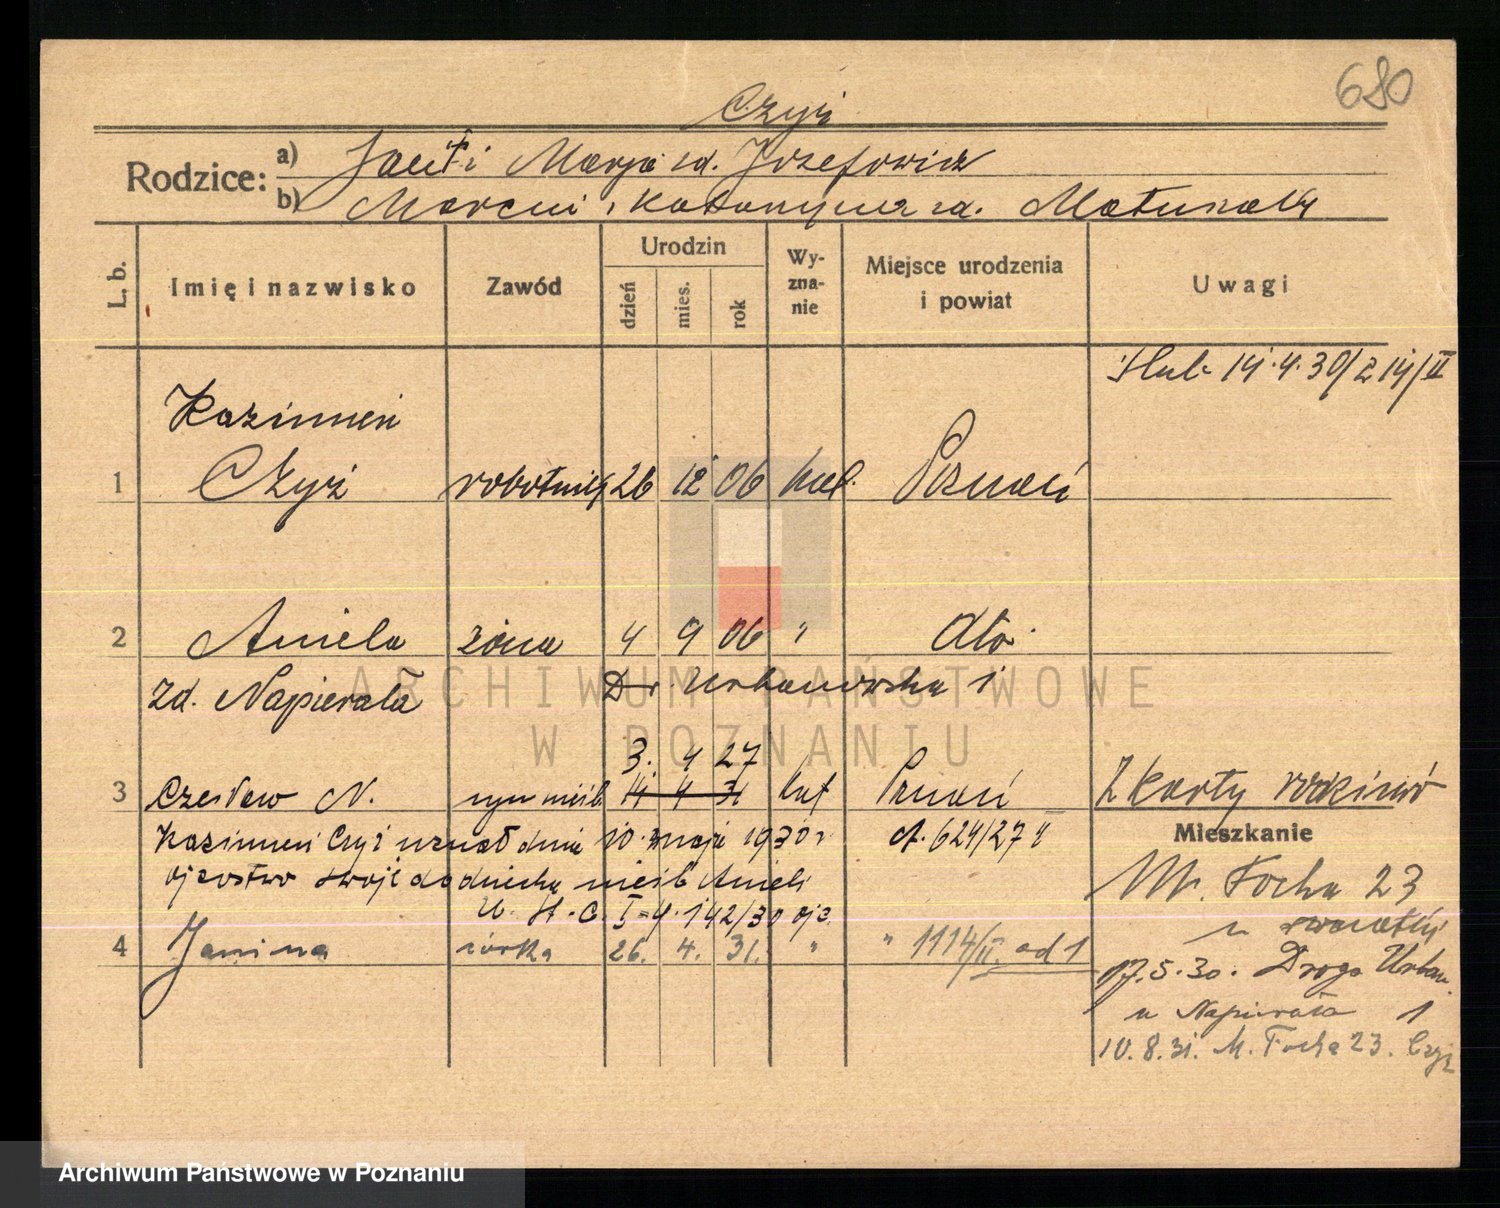 680
Czyż
Rodzice: a) i Marja zd. Józefowicz
b) Marcin i Katarzyna zd.
L. b. Imię i nazwisko Zawód Urodzin dzień mies. rok Wy-zna-nie Miejsce urodzenia i powiat Uwagi
14.4.30/214/II
Kazimierz
1 Czyż robotnik 26 12 06 kat. Poznań
2 Aniela żona 4 9 06 " dto
zd. Napierała Dr. Urbanowska 1
3. 4 27
3 Czesław N. syn nieśl. 14 4 31 kat Poznań Z karty rodziców
Kazimierz Czyż uznał dnia 10 maja 1930 r. A. 624/27 II
ojcostwo swoje do dziecka nieśl Anieli
U. S. C. I 4.142/30 ojc.
Mieszkanie
M. Focha 23
4 Janina córka 26. 4. 31. " " 1114/II. od 1
17.5.30. Droga Urban.
u Napierała 1
10.8.31. M. Focha 23. Czyż
ARCHIWUM PAŃSTWOWE
W POZNANIU
Archiwum Państwowe w Poznaniu